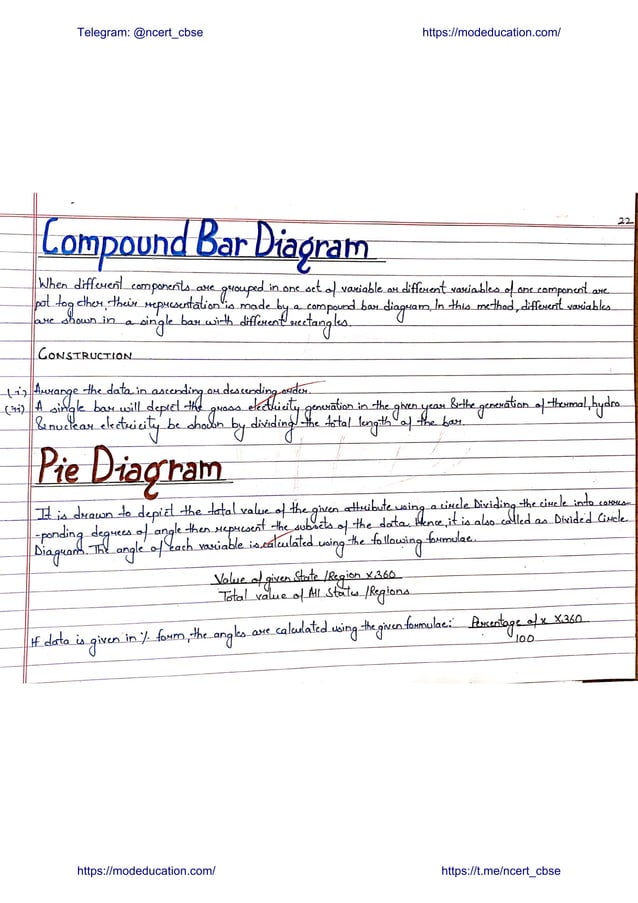 Telegram: @ncert_cbse https://modeducation.com/
22
Compound Bar Diagram
When different components are grouped in one set of variable or different variables of one component are
put together, their representation is made by a compound bar diagram, In this method, different variables
are shown in a single bar with different rectangles.
CONSTRUCTION
(i) Arrange the data in ascending or descending order.
(ii) A single bar will depict the gross electricity generation in the given year & the generation of thermal, hydro
& nuclear electricity be shown by dividing the total length of the bar.
Pie Diagram
It is drawn to depict the total value of the given attribute using a circle Dividing the circle into corres-
-ponding degrees of angle then represent the subsets of the data. Hence, it is also called as Divided Circle
Diagram. The angle of each variable is calculated using the following formulae.
Value of given State / Region X 360
Total value of All States / Regions
If data is given in % form, the angles are calculated using the given formulae: Percentage of x X 360
100
https://modeducation.com/ https://t.me/ncert_cbse